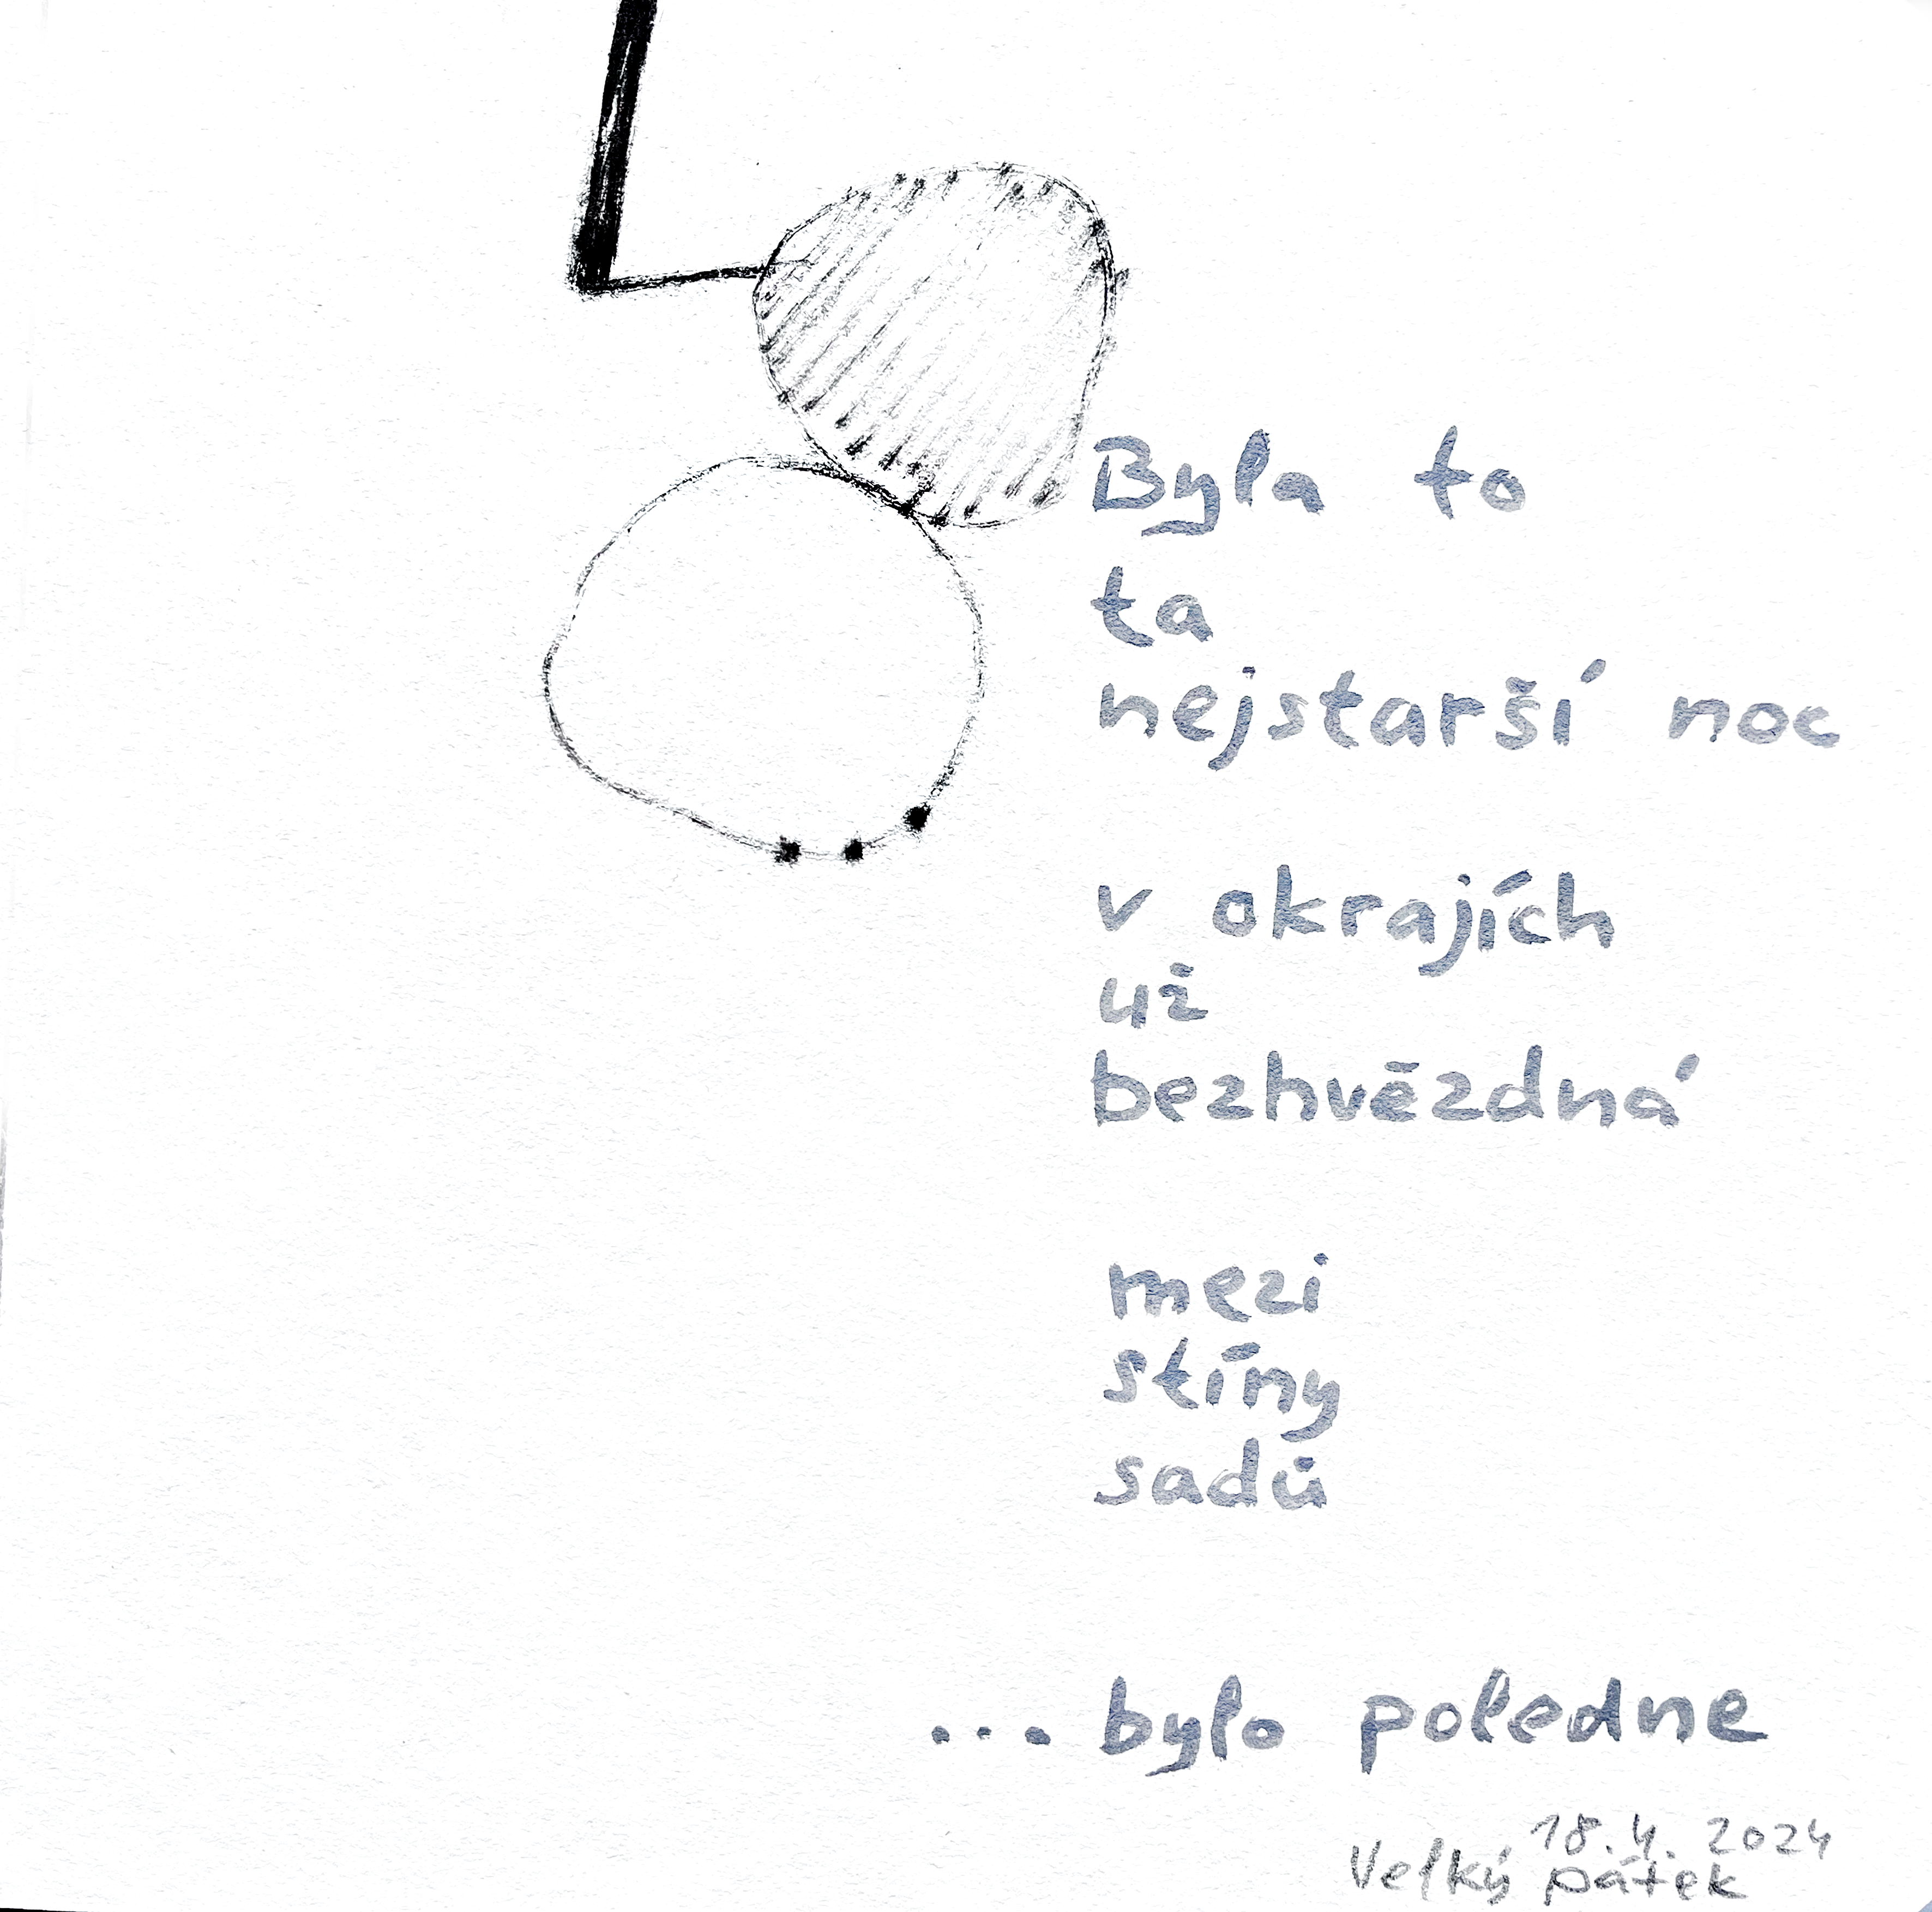 Byla to
ta
nejstarší noc
v okrajích
už
bezhvězdná
mezi
stíny
sadů
... bylo poledne
18.4.2024
Velký pátek